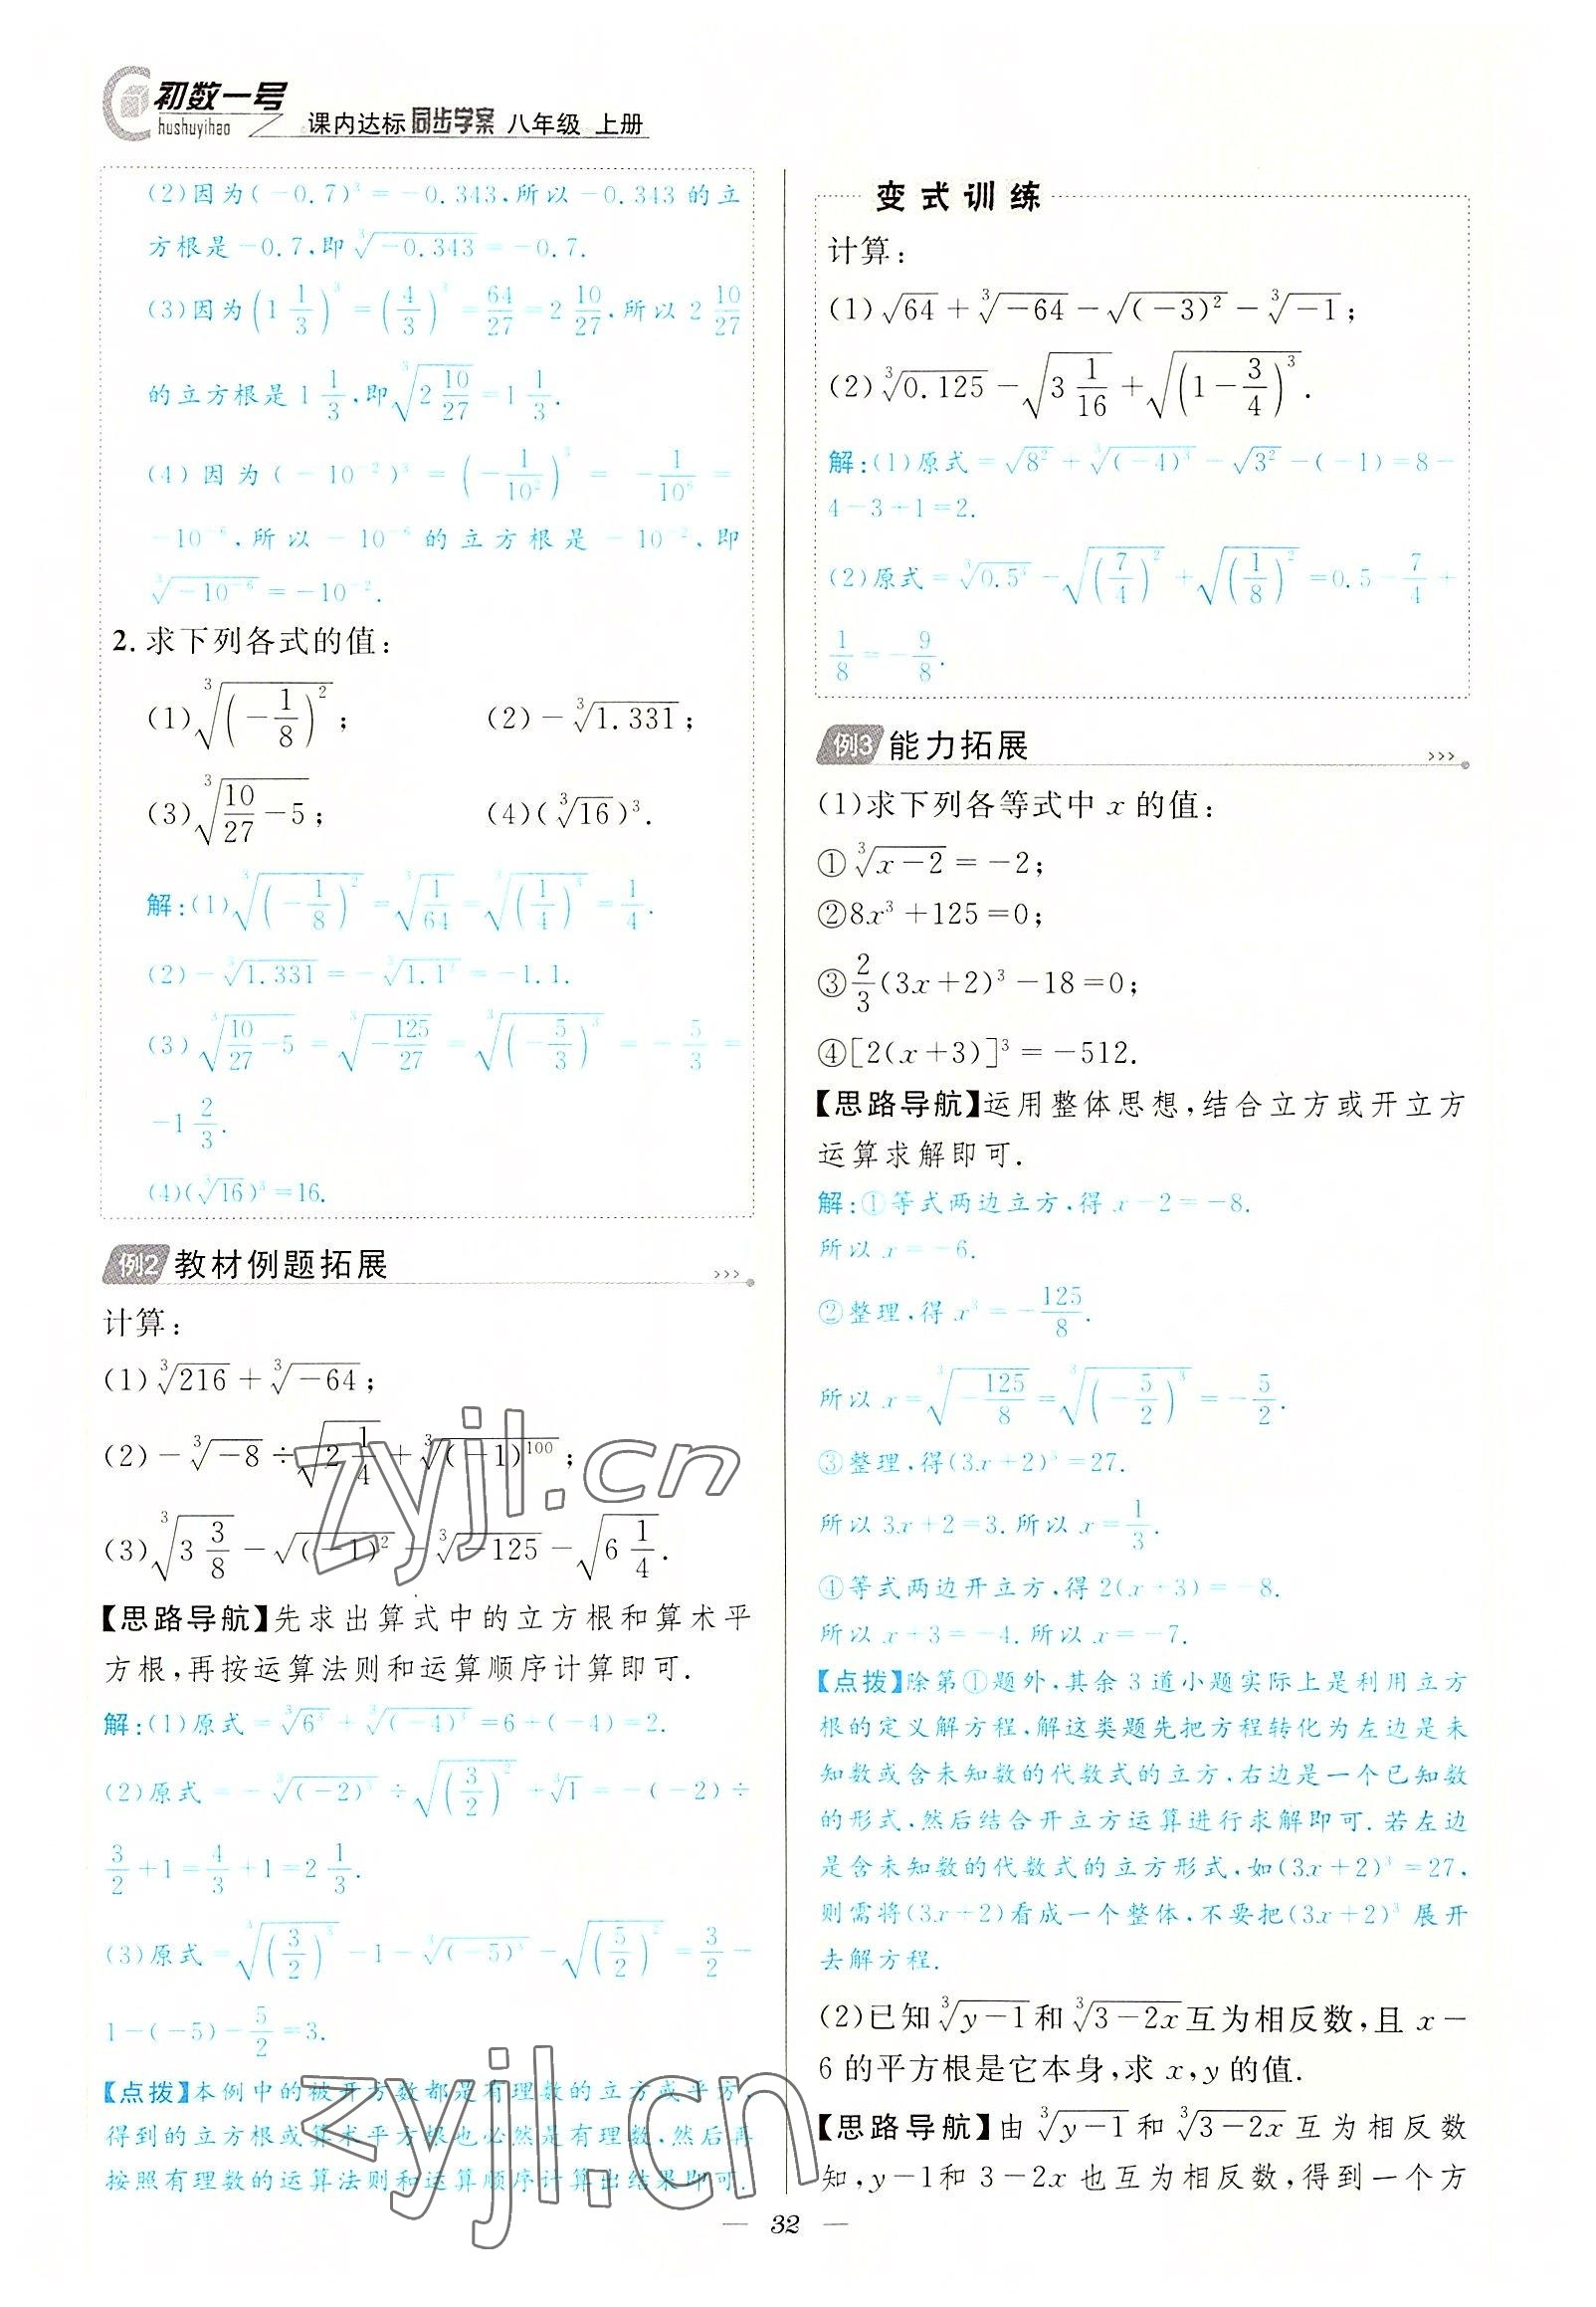 初数一号
hushuyihao
课内达标 同步学案 八年级 上册
(2)因为(-0.7)³=-0.343,所以-0.343的立
方根是-0.7,即∛(-0.343)=-0.7.
(3)因为(1 1/3)³=(4/3)³=64/27=2 10/27,所以 2 10/27
的立方根是 1 1/3,即∛(2 10/27)=1 1/3.
(4)因为(-10⁻²)³=(-1/10²)³=-1/10⁶=
-10⁻⁶,所以-10⁻⁶的立方根是-10⁻²,即
∛(-10⁻⁶)=-10⁻².
2.求下列各式的值:
(1)∛((-1/8)²); (2)-∛1.331;
(3)∛(10/27-5); (4)(∛16)³.
解:(1)∛((-1/8)²)=∛(1/64)=∛((1/4)³)=1/4.
(2)-∛1.331=-∛(1.1³)=-1.1.
(3)∛(10/27-5)=∛(-125/27)=∛((-5/3)³)=-5/3=
-1 2/3.
(4)(∛16)³=16.
例2 教材例题拓展 >>>
计算:
(1)∛216+∛(-64);
(2)-∛(-8)÷√(2 1/4)+∛((-1)¹⁰⁰);
(3)∛(3 3/8)-√((-1)²)-∛(-125)-√(6 1/4).
【思路导航】先求出算式中的立方根和算术平
方根,再按运算法则和运算顺序计算即可.
解:(1)原式=∛(6³)+∛((-4)³)=6+(-4)=2.
(2)原式=-∛((-2)³)÷√((3/2)²)+∛1=-(-2)÷
3/2+1=4/3+1=2 1/3.
(3)原式=∛((3/2)³)-1-∛((-5)³)-√((5/2)²)=3/2-
1-(-5)-5/2=3.
【点拨】本例中的被开方数都是有理数的立方或平方,
得到的立方根或算术平方根也必然是有理数,然后再
按照有理数的运算法则和运算顺序计算出结果即可.
变式训练
计算:
(1)√64+∛(-64)-√((-3)²)-∛(-1);
(2)∛0.125-√(3 1/16)+√((1-3/4)³).
解:(1)原式=√(8²)+∛((-4)³)-√(3²)-(-1)=8-
4-3+1=2.
(2)原式=∛(0.5³)-√((7/4)²)+√((1/8)²)=0.5-7/4+
1/8=-9/8.
例3 能力拓展 >>>
(1)求下列各等式中 x 的值:
①∛(x-2)=-2;
②8x³+125=0;
③2/3(3x+2)³-18=0;
④[2(x+3)]³=-512.
【思路导航】运用整体思想,结合立方或开立方
运算求解即可.
解:①等式两边立方,得 x-2=-8.
所以 x=-6.
②整理,得 x³=-125/8.
所以 x=∛(-125/8)=∛((-5/2)³)=-5/2.
③整理,得(3x+2)³=27.
所以 3x+2=3.所以 x=1/3.
④等式两边开立方,得 2(x+3)=-8.
所以 x+3=-4.所以 x=-7.
【点拨】除第①题外,其余3道小题实际上是利用立方
根的定义解方程,解这类题先把方程转化为左边是未
知数或含未知数的代数式的立方,右边是一个已知数
的形式,然后结合开立方运算进行求解即可.若左边
是含未知数的代数式的立方形式,如(3x+2)³=27,
则需将(3x+2)看成一个整体,不要把(3x+2)³展开
去解方程.
(2)已知∛(y-1)和∛(3-2x)互为相反数,且 x-
6的平方根是它本身,求 x,y 的值.
【思路导航】由∛(y-1)和∛(3-2x)互为相反数
知,y-1和 3-2x 也互为相反数,得到一个方
— 32 —
zyjl.cn
zyjl.cn